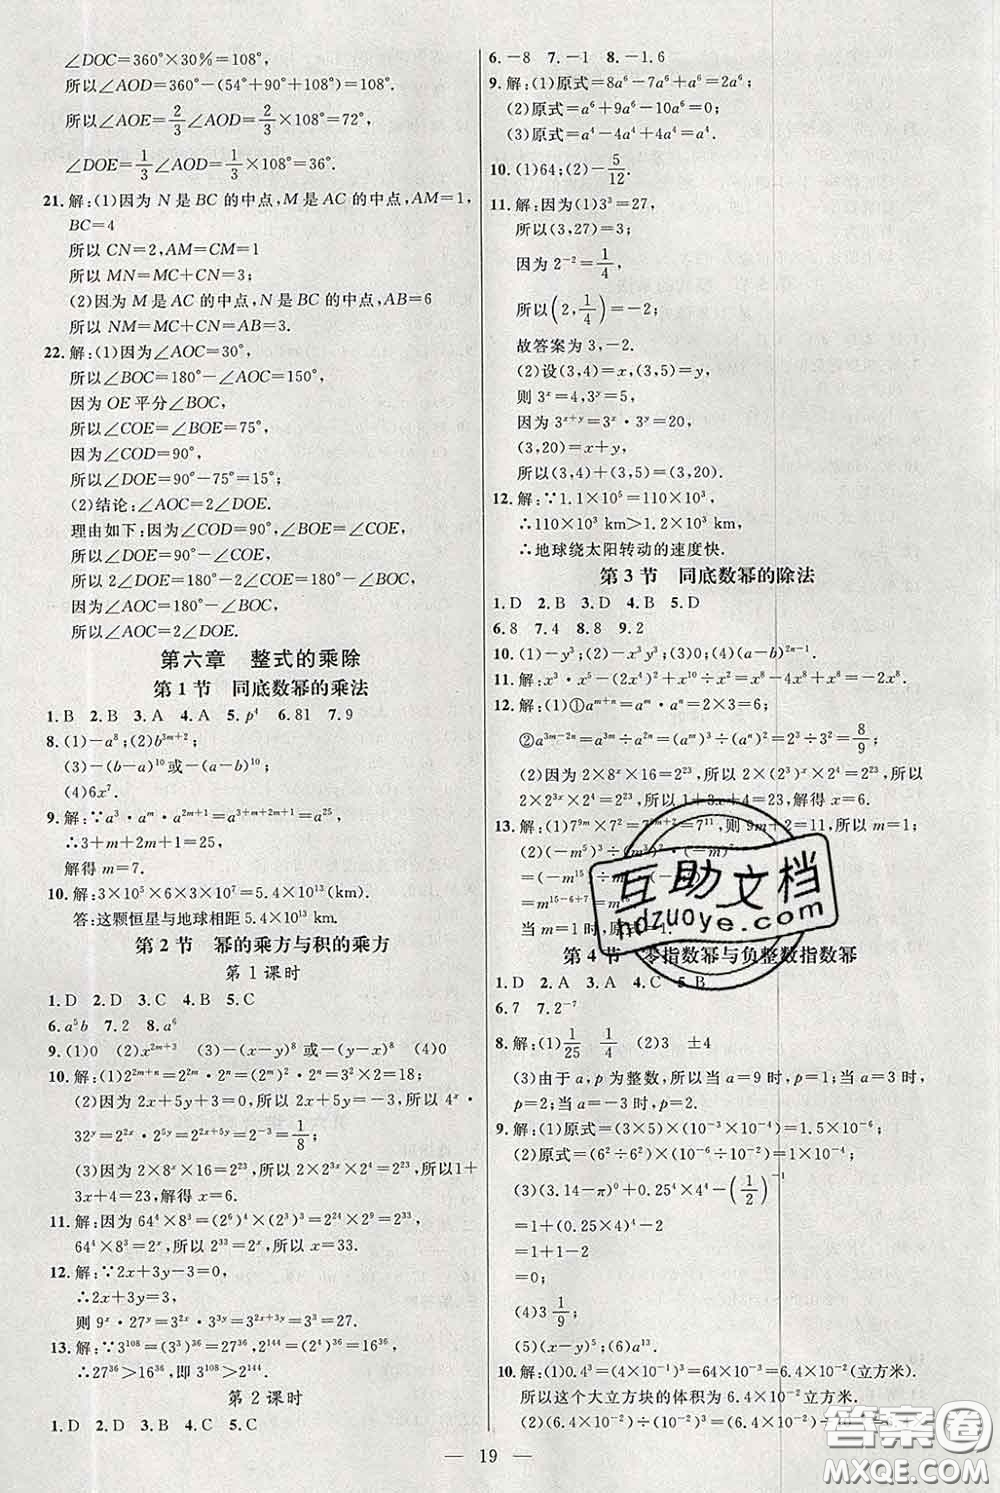 ∠DOC=360°×30%=108°,
所以∠AOD=360°-(54°+90°+108°)=108°.
所以∠AOE=2/3∠AOD=2/3×108°=72°,
∠DOE=1/3∠AOD=1/3×108°=36°.
21.解:(1)因为 N 是 BC 的中点,M 是 AC 的中点,AM=1,
BC=4
所以 CN=2,AM=CM=1
所以 MN=MC+CN=3;
(2)因为 M 是 AC 的中点,N 是 BC 的中点,AB=6
所以 NM=MC+CN=AB=3.
22.解:(1)因为∠AOC=30°,
所以∠BOC=180°-∠AOC=150°,
因为 OE 平分∠BOC,
所以∠COE=∠BOE=75°,
因为∠COD=90°,
所以∠DOE=90°-75°=15°;
(2)结论:∠AOC=2∠DOE.
理由如下:因为∠COD=90°,∠BOE=∠COE,
所以∠DOE=90°-∠COE,
所以 2∠DOE=180°-2∠COE=180°-∠BOC,
因为∠AOC=180°-∠BOC,
所以∠AOC=2∠DOE.
第六章 整式的乘除
第 1 节 同底数幂的乘法
1.B 2.B 3.A 4.A 5.p⁴ 6.81 7.9
8.(1)-a⁸;(2)b^{3m+2};
(3)-(b-a)¹⁰或-(a-b)¹⁰;
(4)6x⁷.
9.解:∵a³·a^m·a^{2m+1}=a^{3+m+2m+1}=a²⁵,
∴3+m+2m+1=25,
解得 m=7.
10.解:3×10⁵×6×3×10⁷=5.4×10¹³(km).
答:这颗恒星与地球相距 5.4×10¹³ km.
第 2 节 幂的乘方与积的乘方
第 1 课时
1.D 2.D 3.C 4.B 5.C
6.a⁵b 7.2 8.a⁶
9.(1)0 (2)x^{2m+3} (3)-(x-y)⁸ 或-(y-x)⁸ (4)0
10.解:(1)2^{2m+n}=2^{2m}·2^n=(2^m)²·2^n=3²×2=18;
(2)因为 2x+5y+3=0,所以 2x+5y=-3,所以 4^x·
32^y=2^{2x}·2^{5y}=2^{2x+5y}=2⁻³=1/8;
(3)因为 2×8^x×16=2²³,所以 2×2^{3x}×2⁴=2²³,所以1+
3x+4=23,解得 x=6.
11.解:因为 64⁴×8³=(2⁶)⁴×(2³)³=2²⁴×2⁹=2³³,
64⁴×8³=2^x,所以 2^x=2³³,所以 x=33.
12.解:∵2x+3y-3=0,
∴2x+3y=3,
则 9^x·27^y=3^{2x}·3^{3y}=3^{2x+3y}=3³=27.
13.解:∵3¹⁰⁸=(3³)³⁶=27³⁶,2¹⁴⁴=(2⁴)³⁶=16³⁶,
∴27³⁶>16³⁶,即 3¹⁰⁸>2¹⁴⁴.
第 2 课时
1.D 2.D 3.A 4.C 5.C
6.-8 7.-1 8.-1.6
9.解:(1)原式=8a⁶-7a⁶+a⁶=2a⁶;
(2)原式=a⁶+9a⁶-10a⁶=0;
(3)原式=a⁴-4a⁴+4a⁴=a⁴.
10.(1)64;(2)-5/12.
11.解:因为(1)3³=27,
所以(3,27)=3;
因为 2⁻²=1/4,
所以(2,1/4)=-2;
故答案为 3,-2.
(2)设(3,4)=x,(3,5)=y,
则 3^x=4,3^y=5,
因为 3^{x+y}=3^x·3^y=20,
(3,20)=x+y,
所以(3,4)+(3,5)=(3,20).
12.解:∵1.1×10⁵=110×10³,
∴110×10³ km>1.2×10³ km,
∴地球绕太阳转动的速度快.
第 3 节 同底数幂的除法
1.D 2.B 3.D 4.B 5.D
6.8 7.4 8.8 9.2
10.(1)-y³;(2)-x³y³;(3)0;(4)(a-b)^{2n-1}.
11.解:x³·x⁵-(2x⁴)²+x¹⁰÷x²=x⁸-4x⁸+x⁸=-2x⁸.
12.解:(1)①a^{m+n}=a^m·a^n=2×3=6;
②a^{3m-2n}=a^{3m}÷a^{2n}=(a^m)³÷(a^n)²=2³÷3²=8/9;
(2)因为 2×8^x×16=2²³,所以 2×(2³)^x×2⁴=2²³,所以
2×2^{3x}×2⁴=2²³,所以 1+3x+4=23,解得 x=6.
13.解:(1)7^{9m}×7²=7^{9m+2}=7¹¹,则 9m+2=11,所以 m=1;
(2)(-m⁵)³÷(m³)²·(-m)⁷
=(-m¹⁵)÷
=m^{15-6+7}
=m¹⁶,
当 m=1时,原式=1.
第 4 节 零指数幂与负整数指数幂
1.D 2.A 3.A 4.C 5.B
6.7 7.2⁻⁷
8.解:(1)1/25 1/4 (2)3 ±4
(3)由于 a,p 为整数,所以当 a=9 时,p=1;当 a=3 时,
p=2;当 a=-3 时,p=2.
9.解:(1)原式=(3×5)×(10⁻³×10⁻⁴)=1.5×10⁻⁶;
(2)原式=(6²÷6²)×(10⁻⁶÷10⁻⁶)=1×1=1;
(3)(3.14-π)⁰+0.25⁴×4⁴-(1/2)⁻¹
=1+(0.25×4)⁴-2
=1+1-2
=0;
(4)3 1/9;
(5)(x-y)⁵;(6)1.
10.解:(1)0.4³=(4×10⁻¹)³=64×10⁻³=6.4×10⁻²(立方米).
所以这个大立方块的体积为 6.4×10⁻² 立方米.
互助文档
hdzuoye.com
答案圈
MXQE.COM
19